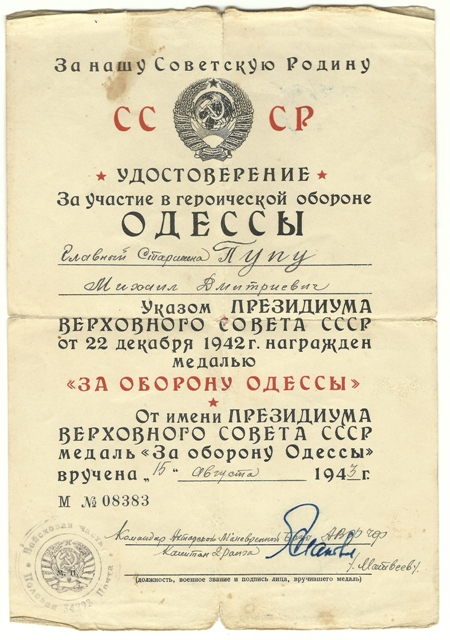 За нашу Советскую Родину
СС СР
УДОСТОВЕРЕНИЕ
За участие в героической обороне
ОДЕССЫ
Главный Старшина Пупу
Михаил Дмитриевич
Указом ПРЕЗИДИУМА
ВЕРХОВНОГО СОВЕТА СССР
от 22 декабря 1942 г. награжден
медалью
«ЗА ОБОРОНУ ОДЕССЫ»
От имени ПРЕЗИДИУМА
ВЕРХОВНОГО СОВЕТА СССР
медаль «За оборону Одессы»
вручена „15“ августа 1943 г.
М № 08383
Командир Маневренной Базы ЧФ
Капитан 2 ранга
/. Матвеев/.
Войсковая часть
Полевая Почта
М. П.
(должность, военное звание и подпись лица, вручившего медаль)